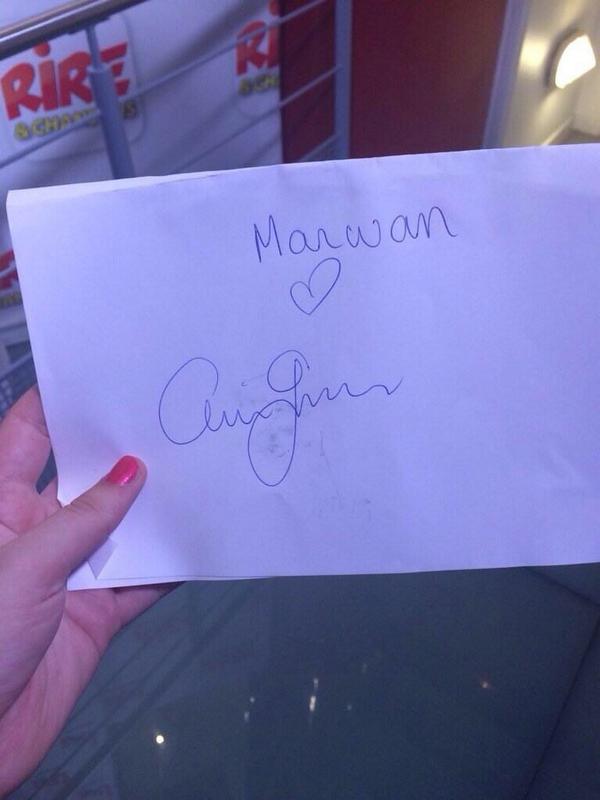 RIRE
& CHANSONS
RI
& CH
Marwan